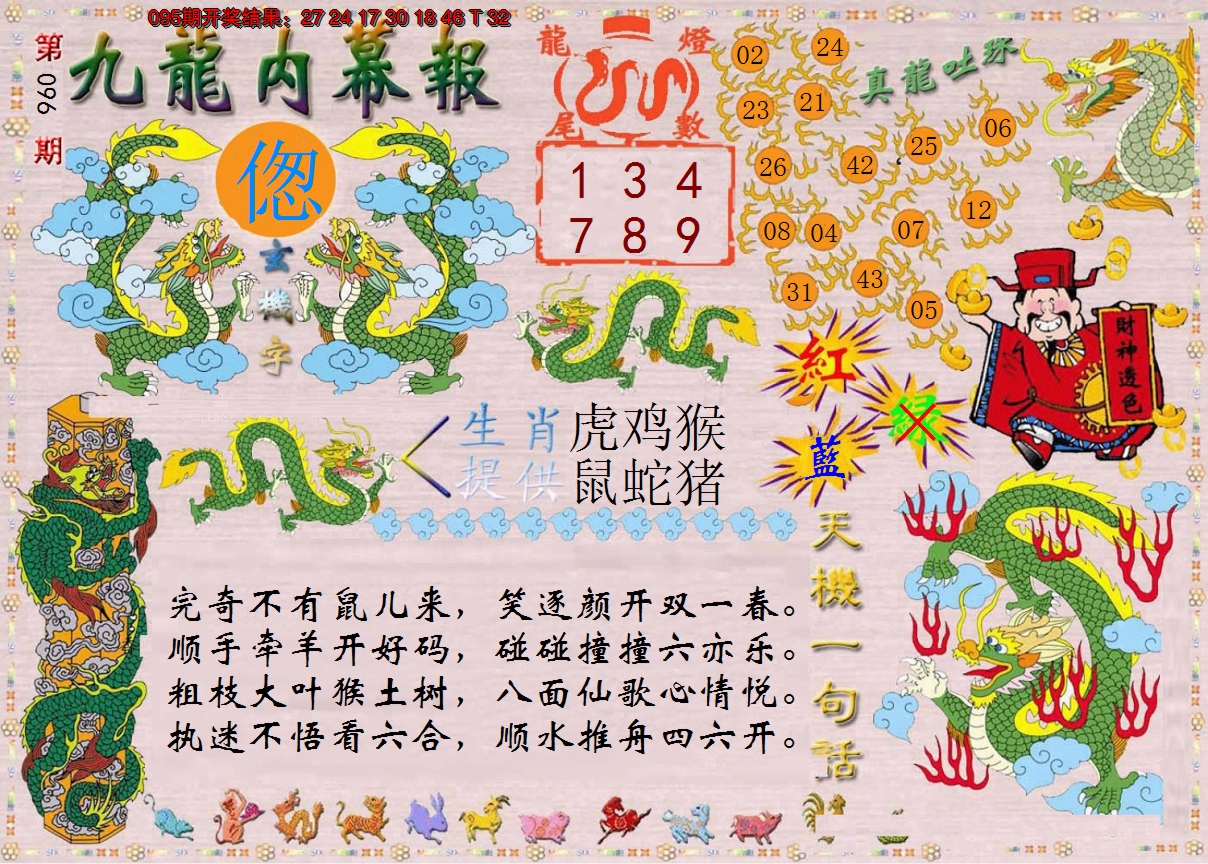 095期开奖结果：27 24 17 30 18 46 T 32
第096期
九龍内幕報
偬
玄機字
龍燈
尾數
1 3 4
7 8 9
真龍吐珠
02 24
23 21
25 06
26 42
12
08 04 07
31 43
05
財神透色
紅
绿
藍
生肖提供
虎鸡猴
鼠蛇猪
天機一句話
完奇不有鼠儿来，笑逐颜开双一春。
顺手牵羊开好码，碰碰撞撞六亦乐。
粗枝大叶猴土树，八面仙歌心情悦。
执迷不悟看六合，顺水推舟四六开。